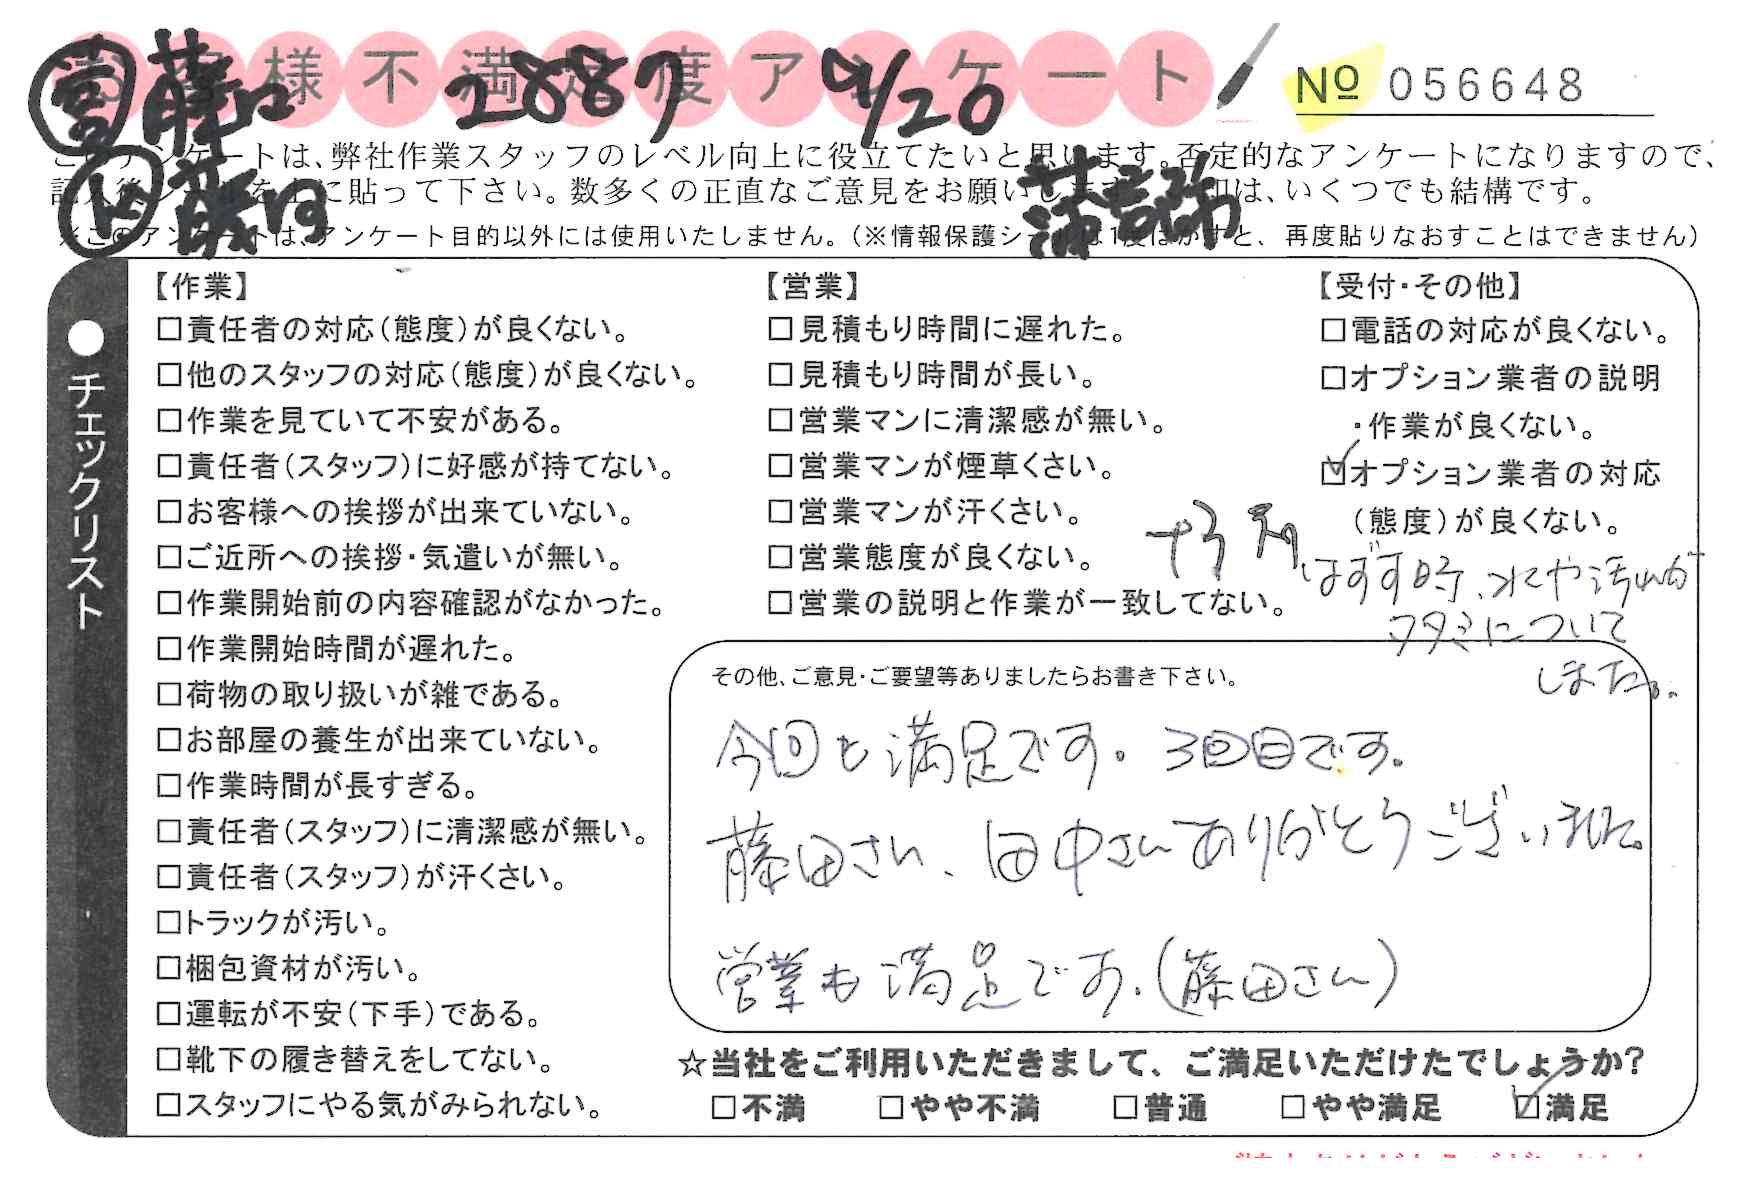 お客様不満足度アンケート
№ 056648
営 藤江 2887 9/20
このアンケートは、弊社作業スタッフのレベル向上に役立てたいと思います。否定的なアンケートになりますので、
記入後シールを上に貼って下さい。数多くの正直なご意見をお願いします。 印は、いくつでも結構です。
ト 藤田
※このアンケートは、アンケート目的以外には使用いたしません。（※情報保護シールは1度はがすと、再度貼りなおすことはできません）
●チェックリスト
【作業】
□責任者の対応（態度）が良くない。
□他のスタッフの対応（態度）が良くない。
□作業を見ていて不安がある。
□責任者（スタッフ）に好感が持てない。
□お客様への挨拶が出来ていない。
□ご近所への挨拶・気遣いが無い。
□作業開始前の内容確認がなかった。
□作業開始時間が遅れた。
□荷物の取り扱いが雑である。
□お部屋の養生が出来ていない。
□作業時間が長すぎる。
□責任者（スタッフ）に清潔感が無い。
□責任者（スタッフ）が汗くさい。
□トラックが汚い。
□梱包資材が汚い。
□運転が不安（下手）である。
□靴下の履き替えをしてない。
□スタッフにやる気がみられない。
【営業】
□見積もり時間に遅れた。
□見積もり時間が長い。
□営業マンに清潔感が無い。
□営業マンが煙草くさい。
□営業マンが汗くさい。
□営業態度が良くない。
□営業の説明と作業が一致してない。
【受付・その他】
□電話の対応が良くない。
□オプション業者の説明
・作業が良くない。
☑オプション業者の対応
（態度）が良くない。
はずす時、水や汚れが
タタミについて
しまた。
その他、ご意見・ご要望等ありましたらお書き下さい。
今回も満足です。3回目です。
藤田さん、田中さんありがとうございました。
営業も満足です。（藤田さん）
☆当社をご利用いただきまして、ご満足いただけたでしょうか？
□不満 □やや不満 □普通 □やや満足 ☑満足